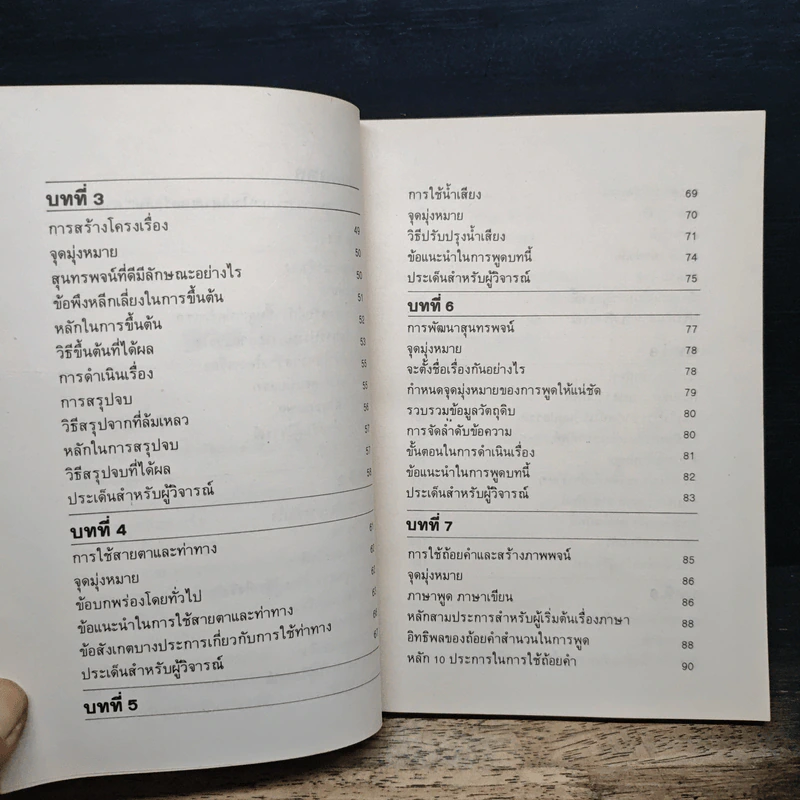 บทที่ 3
การสร้างโครงเรื่อง 49
จุดมุ่งหมาย 50
สุนทรพจน์ที่ดีมีลักษณะอย่างไร 50
ข้อพึงหลีกเลี่ยงในการขึ้นต้น 51
หลักในการขึ้นต้น 52
วิธีขึ้นต้นที่ได้ผล 53
การดำเนินเรื่อง 55
การสรุปจบ 55
วิธีสรุปจากที่ล้มเหลว 56
หลักในการสรุปจบ 57
วิธีสรุปจบที่ได้ผล 57
ประเด็นสำหรับผู้วิจารณ์ 58
บทที่ 4
การใช้สายตาและท่าทาง 61
จุดมุ่งหมาย
ข้อบกพร่องโดยทั่วไป
ข้อแนะนำในการใช้สายตาและท่าทาง
ข้อสังเกตบางประการเกี่ยวกับการใช้ท่าทาง
ประเด็นสำหรับผู้วิจารณ์
บทที่ 5
การใช้น้ำเสียง 69
จุดมุ่งหมาย 70
วิธีปรับปรุงน้ำเสียง 71
ข้อแนะนำในการพูดบทนี้ 74
ประเด็นสำหรับผู้วิจารณ์ 75
บทที่ 6
การพัฒนาสุนทรพจน์ 77
จุดมุ่งหมาย 78
จะตั้งชื่อเรื่องกันอย่างไร 78
กำหนดจุดมุ่งหมายของการพูดให้แน่ชัด 79
รวบรวมข้อมูลวัตถุดิบ 80
การจัดลำดับข้อความ 80
ขั้นตอนในการดำเนินเรื่อง 81
ข้อแนะนำในการพูดบทนี้ 82
ประเด็นสำหรับผู้วิจารณ์ 83
บทที่ 7
การใช้ถ้อยคำและสร้างภาพพจน์ 85
จุดมุ่งหมาย 86
ภาษาพูด ภาษาเขียน 86
หลักสามประการสำหรับผู้เริ่มต้นเรื่องภาษา 88
อิทธิพลของถ้อยคำสำนวนในการพูด 88
หลัก 10 ประการในการใช้ถ้อยคำ 90